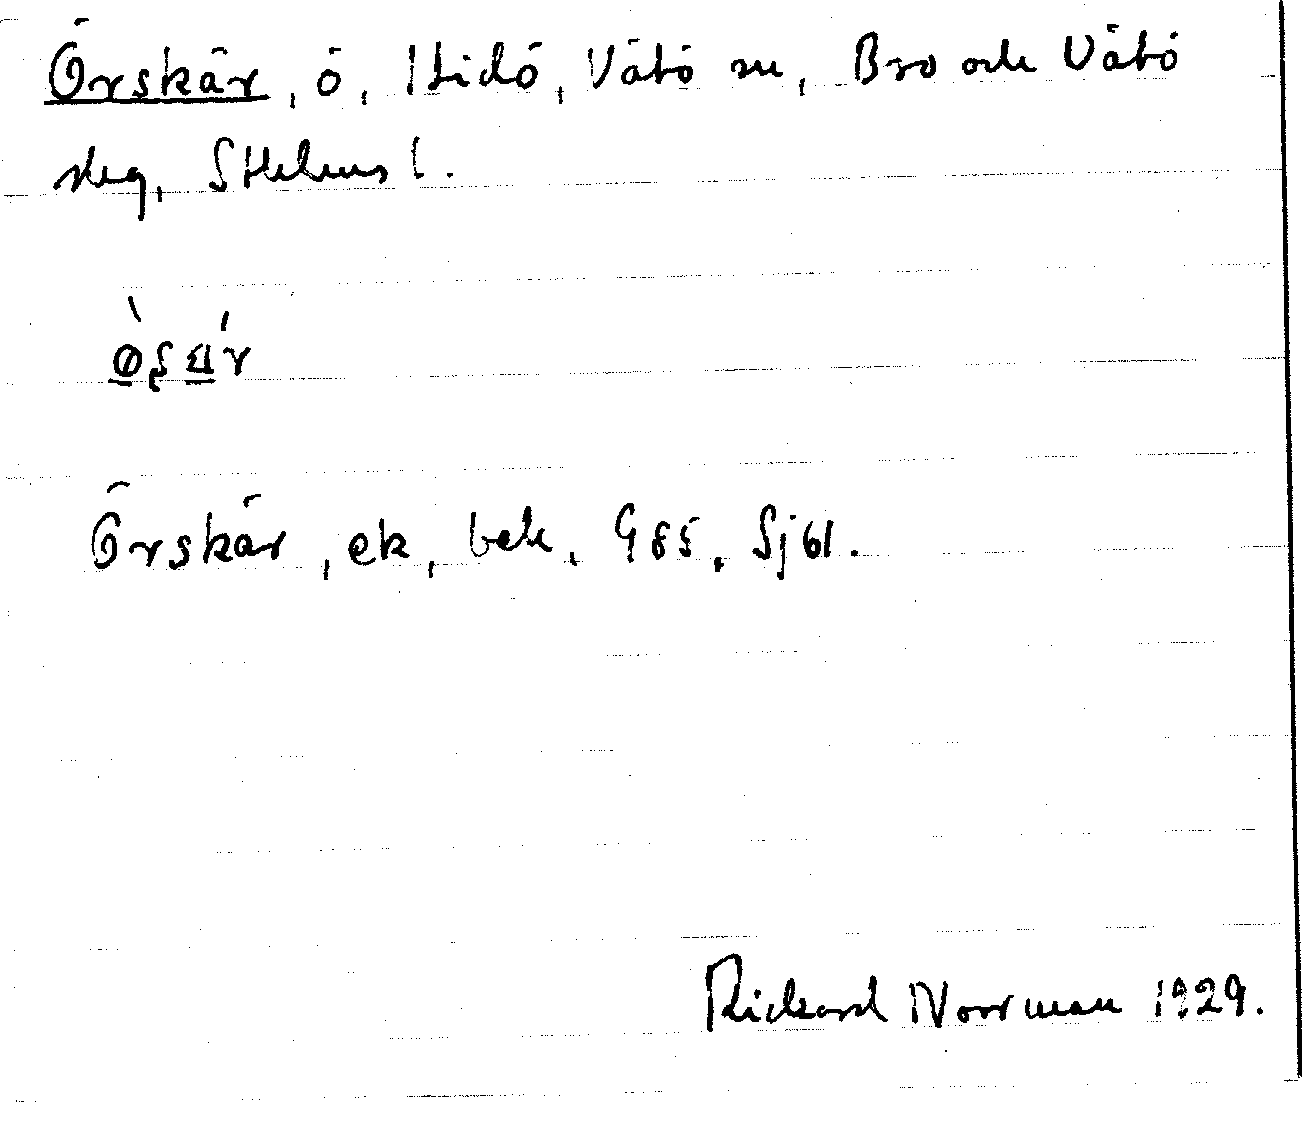 Örskär, ö, Lidö, Vätö sn, Bro och Vätö
skg, Sthlms l.
Örskär, ek, bek, G85, Sj61.
Rickard Norrman 1929.